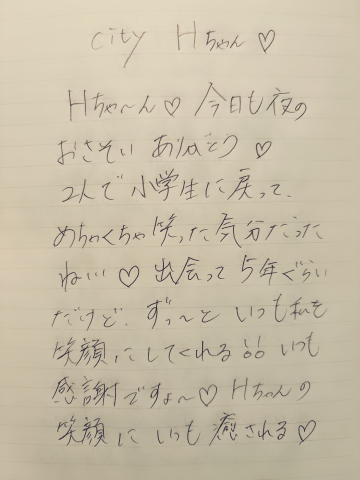 city Hちゃん♡
Hちゃ〜ん♡ 今日も夜の
おさそい ありがとう ♡
2人で小学生に戻って、
めちゃくちゃ笑った気分だった
ねいい♡ 出会って5年ぐらい
だけど、ずっ〜と いつも私を
笑顔にしてくれる いつも
感謝ですよ〜♡ Hちゃんの
笑顔に いつも 癒される♡